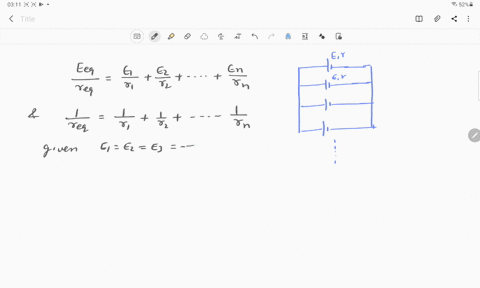 03:11
52%
Title
Eeq/req = ε1/r1 + ε2/r2 + ---- + εn/rn
& 1/req = 1/r1 + 1/r2 + ----- 1/rn
given ε1 = ε2 = ε3 = ---
ε, r
ε, r